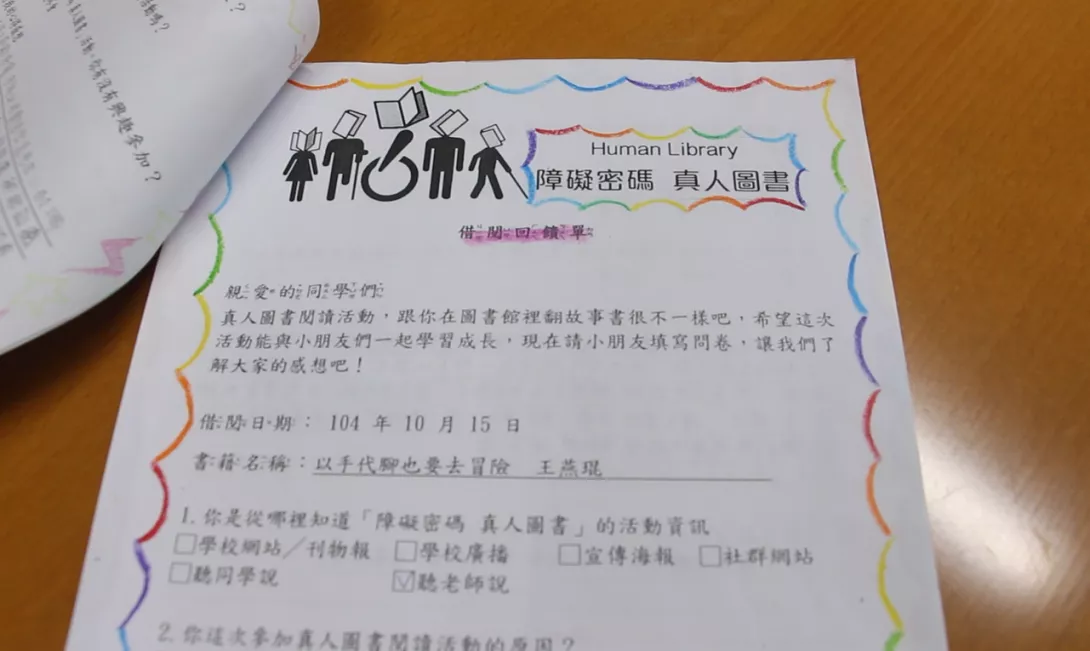 活動嗎？
有沒有興趣參加？
Human Library
障礙密碼 真人圖書
借閱回饋單
親愛的同學們
真人圖書閱讀活動，跟你在圖書館裡翻故事書很不一樣吧，希望這次
活動能與小朋友們一起學習成長，現在請小朋友填寫問卷，讓我們了
解大家的感想吧！
借閱日期： 104 年 10 月 15 日
書籍名稱：以手代腳也要去冒險 王燕琨
1.你是從哪裡知道「障礙密碼 真人圖書」的活動資訊
□學校網站／刊物報 □學校廣播 □宣傳海報 □社群網站
□聽同學說 ☑聽老師說
2.你這次參加真人圖書閱讀活動的原因？